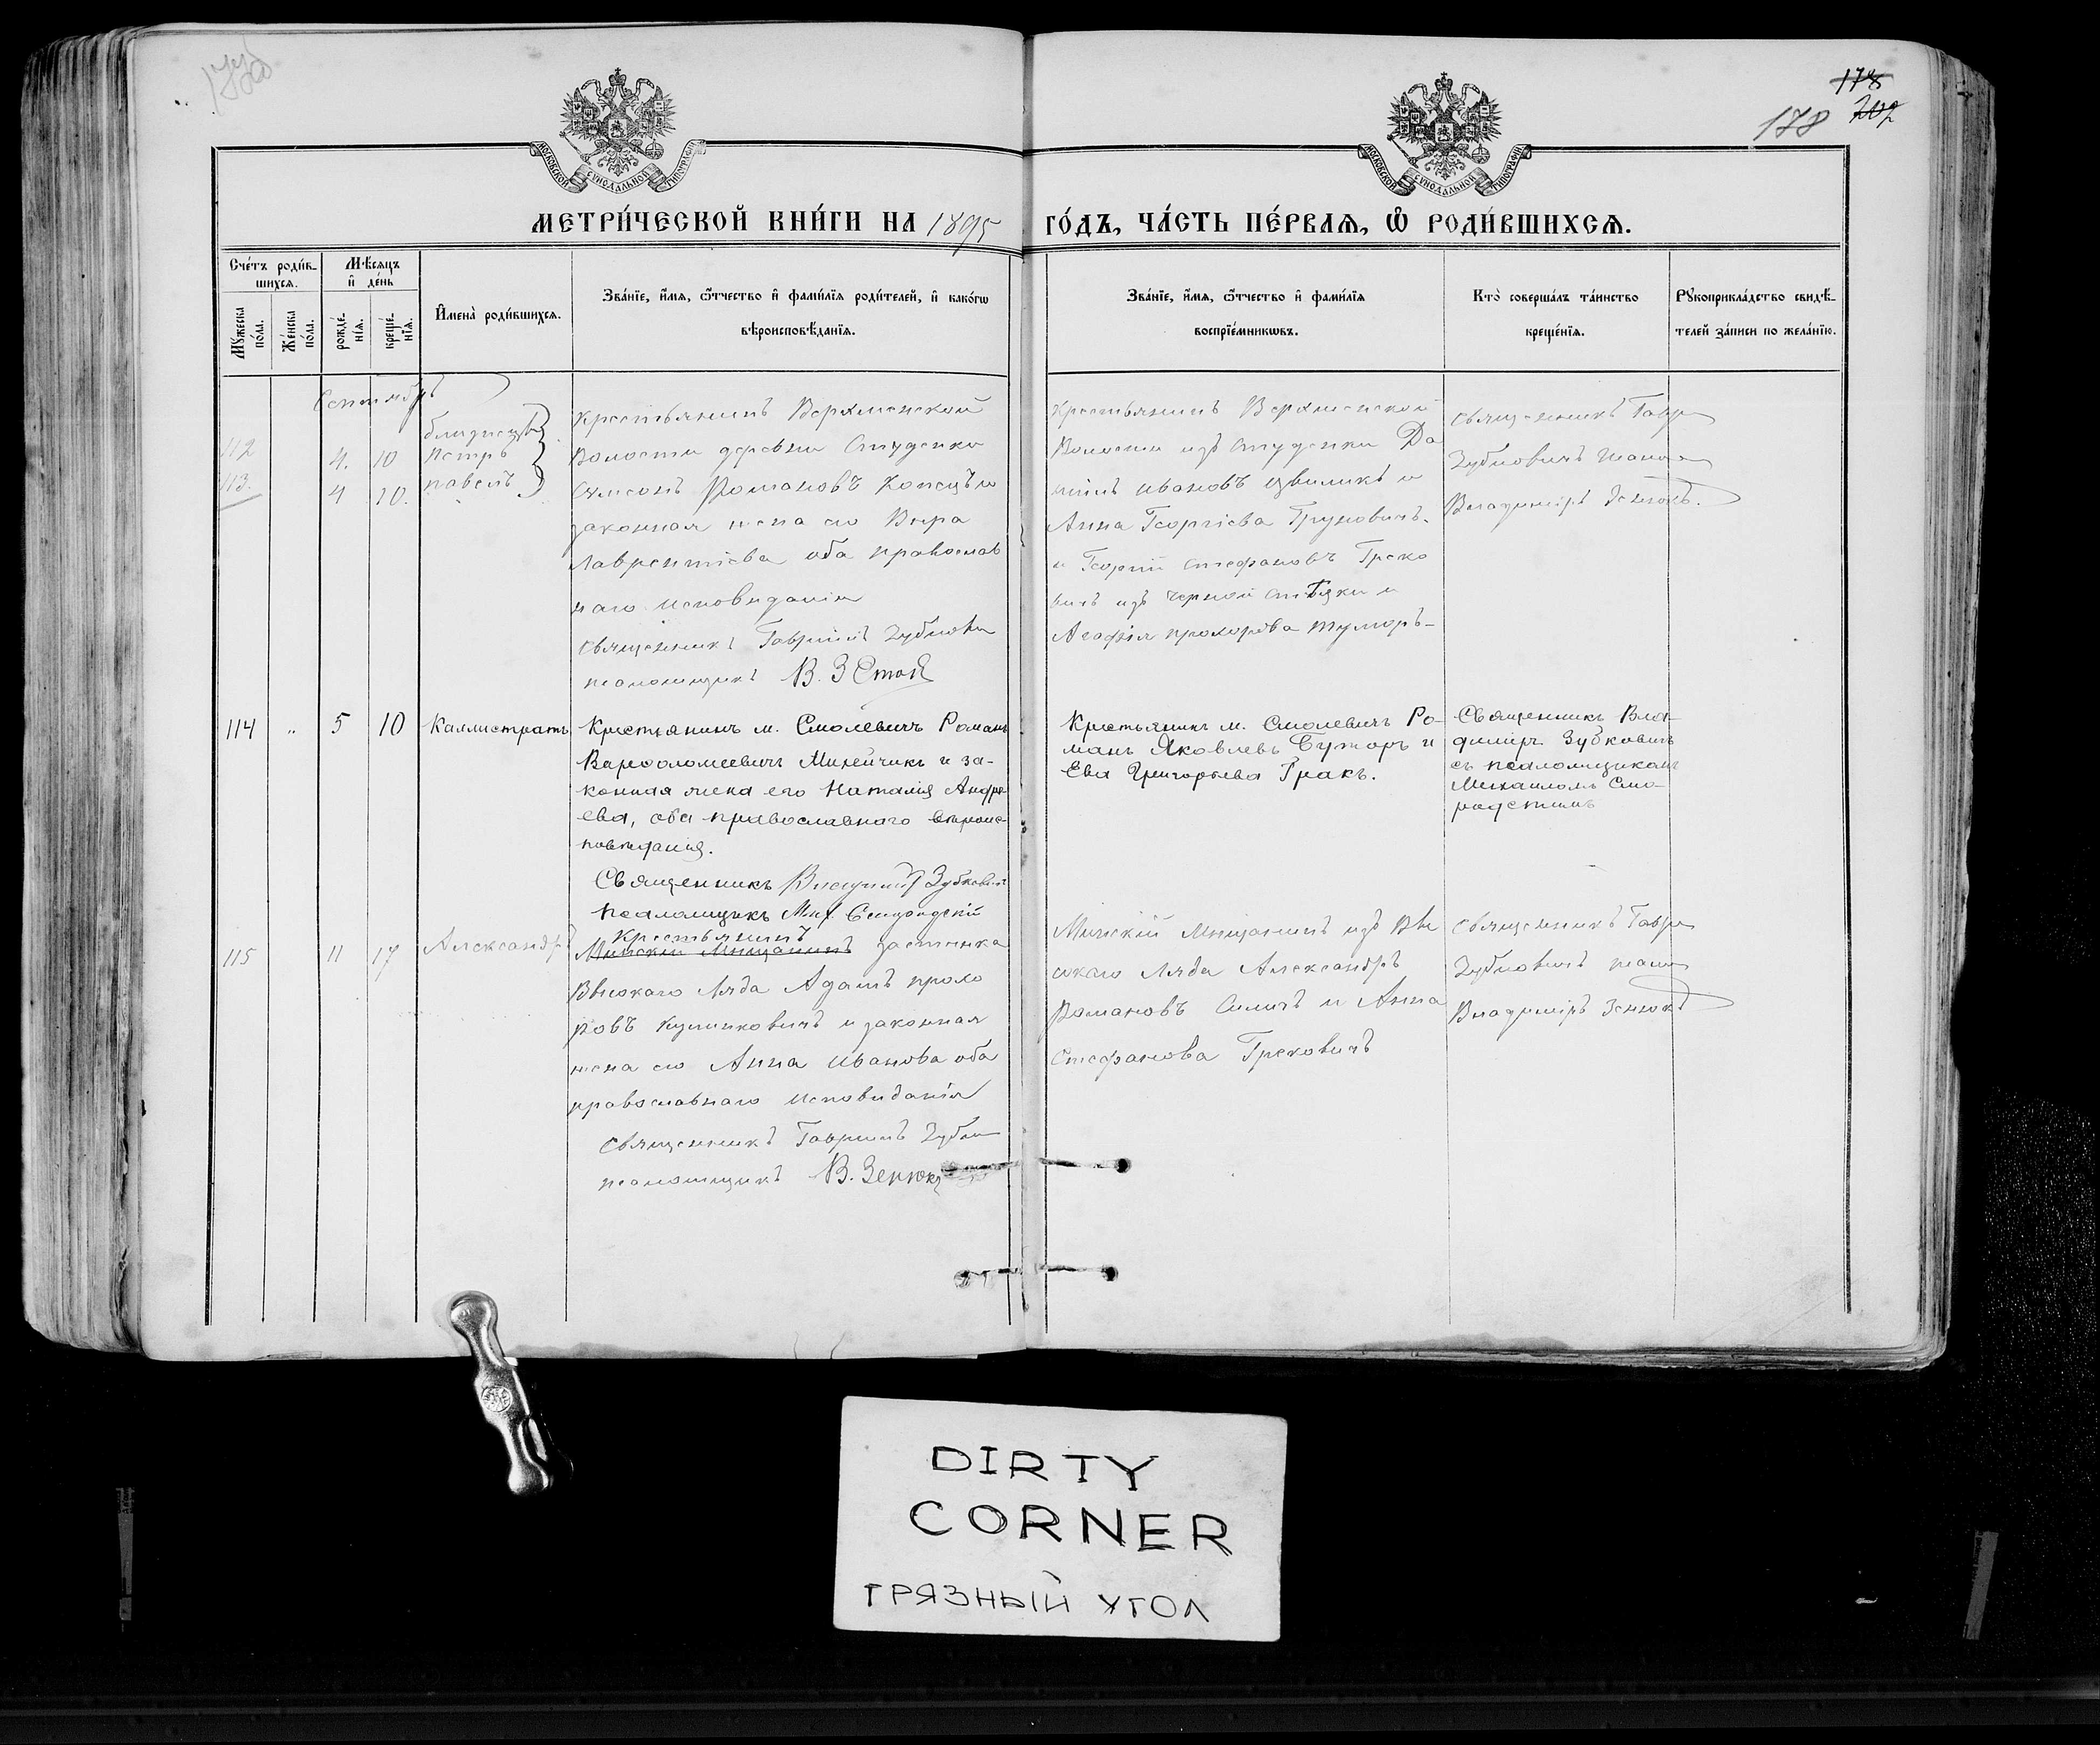 178
202
178
МОСКОВСКОЙ СУНОДАЛЬНОЙ ТИПОГРАФІИ
МОСКОВСКОЙ СУНОДАЛЬНОЙ ТИПОГРАФІИ
МЕТРИ́ЧЕСКОЙ КНИ́ГИ НА 1895 ГО́ДЪ, ЧА́СТЬ ПЕ́РВАѦ, Ѡ҆ РОДИ́ВШИХСѦ.
Сче́тъ роди́в-
шихсѧ.
Мѣ́сѧцъ
и҆ де́нь
Мꙋ́жеска по́ла.
Же́нска по́ла.
рожде́-
нїѧ.
креще́-
нїѧ.
И҆мена̀ роди́вшихсѧ.
Зва́нїе, и҆́мѧ, ѻ҆́тчество и҆ фами́лїѧ роди́телей, и҆ како́гѡ
вѣроисповѣ́данїѧ.
Зва́нїе, и҆́мѧ, ѻ҆́тчество и҆ фами́лїѧ
воспрїе́мникѡвъ.
Кто̀ соверша́лъ та́инство
креще́нїѧ.
Рꙋкоприкла́дство свидѣ́-
телей за́писи по жела́нїю.
Сентябрь
112 4. 10
113. 4 10.
близнецы
Петръ
Павелъ
Крестьянинъ Верхменской
Волости деревни Студенки
Сумеонъ Романовъ Копецъ и
законная жена его Вѣра
Лаврентіева оба православ
наго исповѣданія
Священникъ Гавріилъ Зубкови
псаломщикъ В. Зенюкъ
Крестьянинъ Верхменской
Волости изъ Студенки Да
ніилъ Ивановъ Цвиликъ и
Анна Георгіева Грековичъ.
и Георгій Стефановъ Греко
вичъ изъ Черной и
Агафія Прохорова
Священникъ Гаврі
Зубковичъ
Владиміръ Зенюкъ.
114 „ 5 10 Каллистратъ
Крестьянинъ м. Смолевичъ Романъ
Варфоломеевичъ Михейчикъ и за-
конная жена его Наталія Андре-
ева, оба православнаго вѣроис-
повѣданія.
Священникъ Владиміръ Зубковичъ
Псаломщикъ Мих.
Крестьянинъ м. Смолевичъ Ро-
манъ Яковлевъ Буторъ и
Ева Григорьева Гракъ.
Священникъ Вла-
диміръ Зубковичъ
съ псаломщикомъ
Михаиломъ
115 11 17 Александръ
Крестьянинъ
Минскій Мѣщанинъ застѣнка
Высокаго Ляда Адамъ Прохо
ровъ Куликовичъ и законная
жена его Анна Иванова оба
православнаго исповѣданія
Священникъ Гавріилъ Зубко
псаломщикъ В. Зенюкъ
Минскій Мѣщанинъ изъ Вы
сокаго Ляда Александръ
Романовъ Силичъ и Анна
Стефанова Грековичъ
Священникъ Гаврі
Зубковичъ
Владиміръ Зенюкъ
DIRTY
CORNER
ГРЯЗНЫЙ УГОЛ